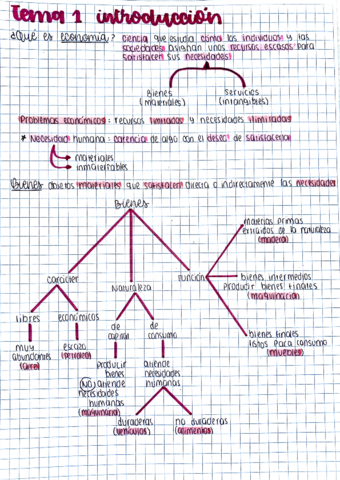 Tema 1 introducción
¿Qué es economía? ciencia que estudia cómo los individuos y las
sociedades asignan unos recursos escasos para
satisfacer sus necesidades
Bienes servicios
(materiales) (intangibles)
Problemas económicos: recursos limitados y necesidades ilimitadas
* Necesidad humana: carencia de algo con el deseo de satisfacerla
materiales
inmateriables
Bienes objetos materiales que satisfacen directa o indirectamente las necesidades
Bienes
materias primas
extraídos de la naturaleza
(madera)
carácter Naturaleza función
bienes intermedios
producir bienes finales
(maquinaria)
libres económicos de capital de consumo
bienes finales
listos para consumo
(muebles)
muy abundantes
(aire)
escaso
(petróleo)
producir
bienes
(NO) atiende
necesidades
humanas
(maquinaria)
atiende
necesidades
humanas
duraderas no duraderas
(vehículos) (alimentos)